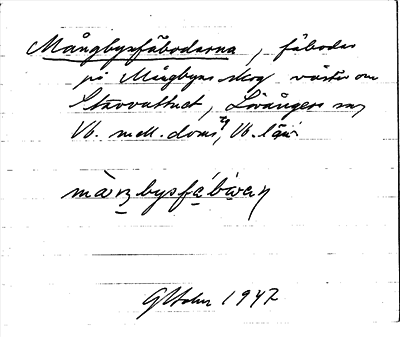 Mångbyfäbodarna, fäbodar
på Mångbyns skog väster om
Stavvattnet, Lövångers sn,
Vb. mell. doms., Vb. län
G Holm 1947